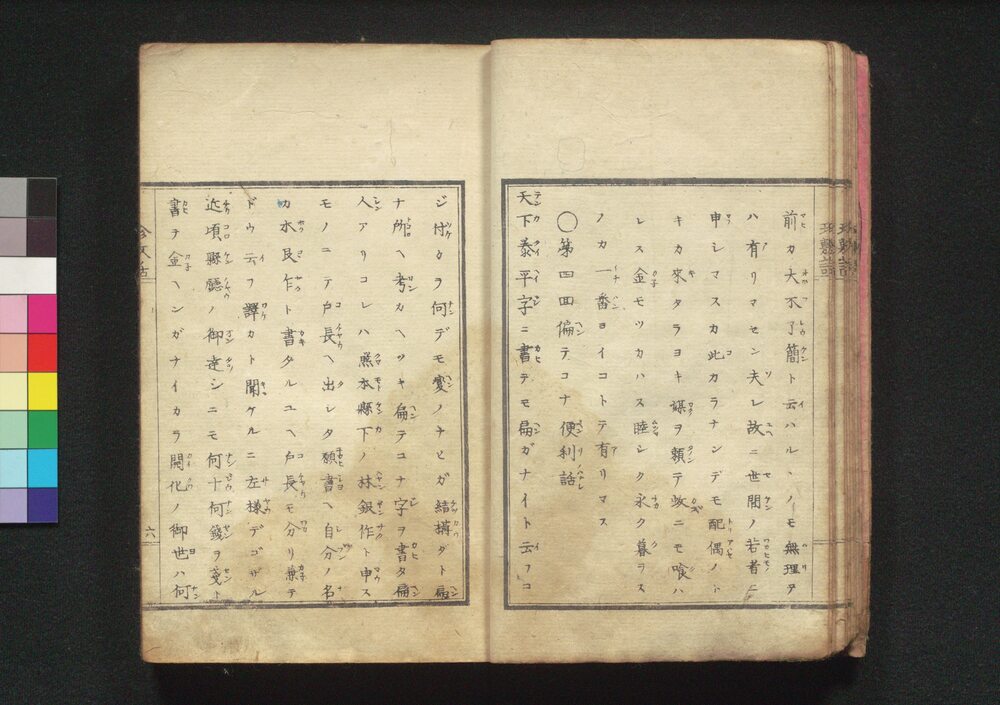 前カ大不了簡ト云ハルヽノモ無理ヲ
ハ有リマセン夫レ故ニ世間ノ若者ニ
申シマスカ此カラナンデモ配偶ノト
キカ來タラヨキ媒ヲ頼テ蚊ニモ喰ハ
レス金モツカハス睦シク永ク暮ラス
ノカ一番ヨイコトテ有リマス
◯第四回偏テコナ便利話
天下泰平字ニ書テモ扁ガナイト云フコ
ジ付カラ何デモ変ノナヒガ結構ダト扁
ナ所ヘ考カヘツキ扁テコナ字ヲ書タ扁
人アリコレハ熊本縣下ノ林銀作ト申ス
モノニテ戸長ヘ出レタ願書ヘ自分ノ名
カ木艮乍ト書タルユヘ戸長モ分リ兼テ
ドウ云フ譯カト聞ケルニ左様デゴザル
近頃縣廳ノ御達シニモ何十何錢ヲ戔ト
書チ金ヘンガナイカラ開化ノ御世ハ何
六